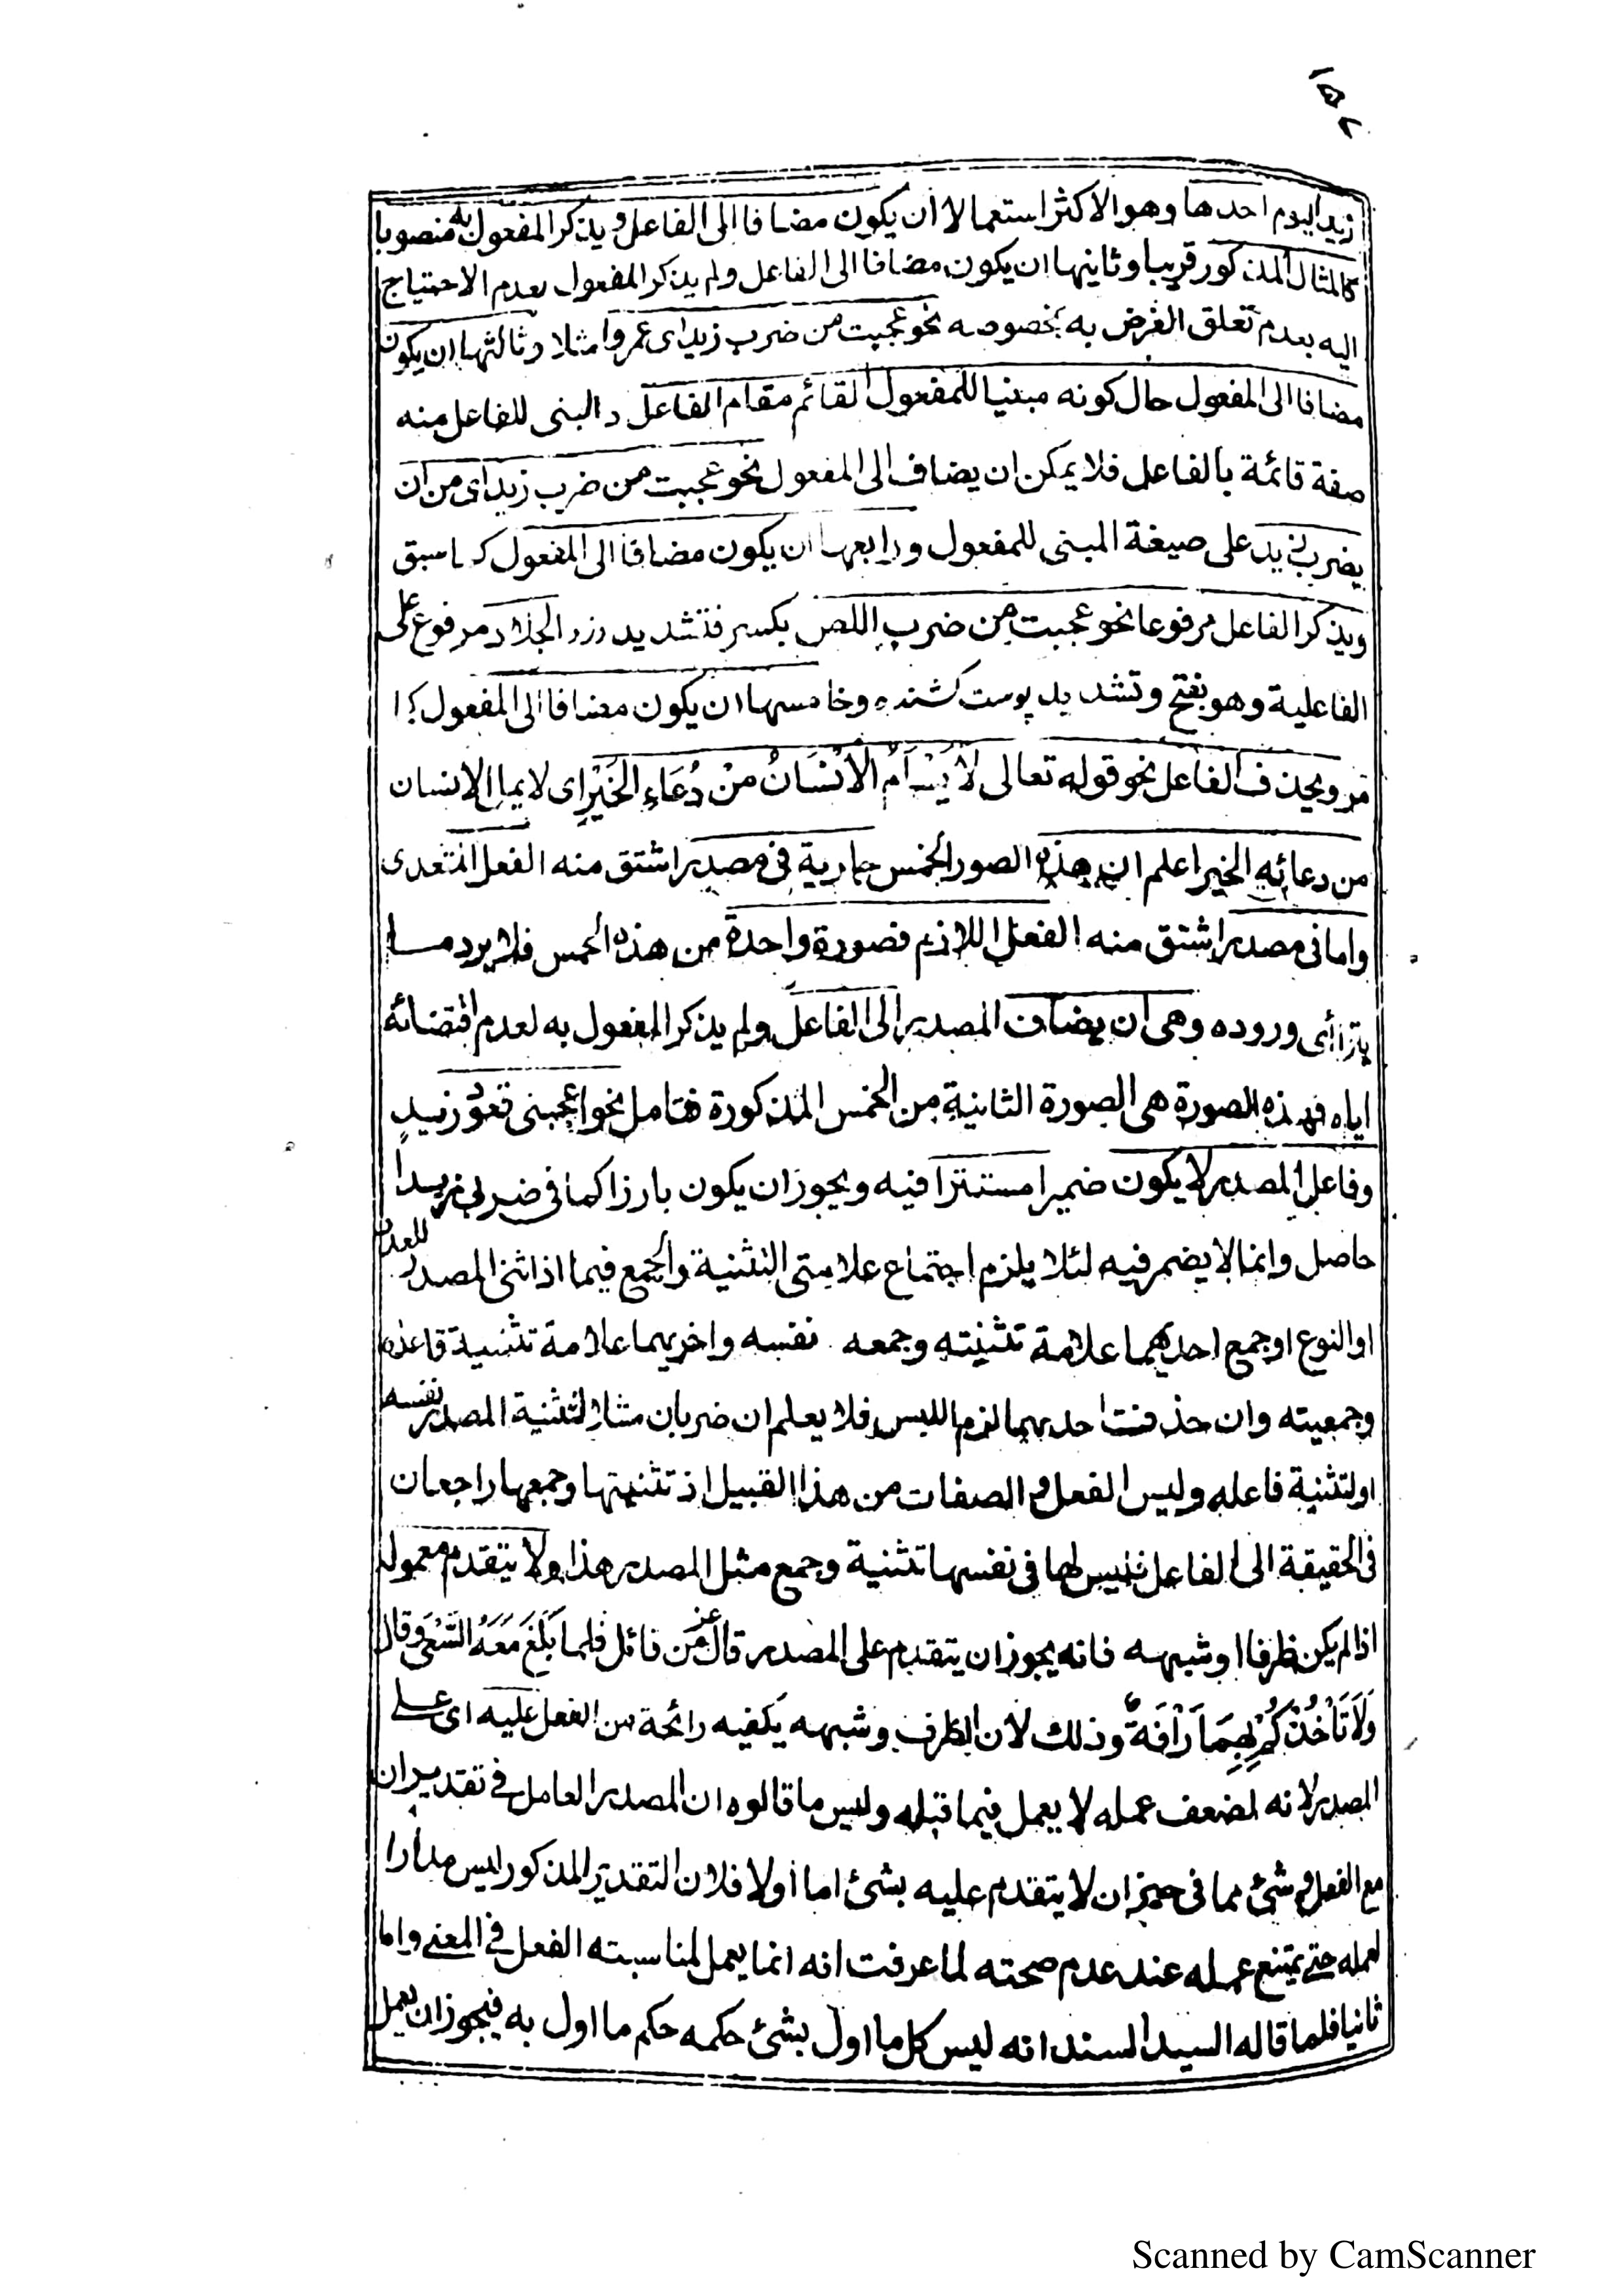 ١٥٢
زيد اليوم احدها وهو الاكثر استعمالا ان يكون مضافا الى الفاعل ويذكر المفعول به منصوبا
كالمثال المذكور قريبا وثانيها ان يكون مضافا الى الفاعل ولم يذكر المفعول بعدم الاحتياج
اليه بعدم تعلق الغرض به بخصوصه نحو عجبت من ضرب زيد اى عمروا مثلا وثالثها ان يكون
مضافا الى المفعول حال كونه مبنيا للمفعول القائم مقام الفاعل والبنى للفاعل منه
صفة قائمة بالفاعل فلا يمكن ان يضاف الى المفعول نحو عجبت من ضرب زيد اى من ان
يضرب زيد على صيغة المبنى للمفعول ورابعها ان يكون مضافا الى المفعول كما سبق
ويذكر الفاعل مرفوعا نحو عجبت من ضرب اللص بكسر فتشديد دزد الجلاد مرفوع على
الفاعلية وهو بفتح وتشديد پوست كشنده وخامسها ان يكون مضافا الى المفعول كما
مر ويحذف الفاعل نحو قوله تعالى لَا يَسْأَمُ الْاِنْسَانُ مِنْ دُعَاءِ الْخَيْرِ اى لا يمل الانسان
من دعائه الخير اعلم ان هذه الصور الخمس جارية فى مصدر اشتق منه الفعل المتعدى
واما فى مصدر اشتق منه الفعل اللازم فصورة واحدة من هذه الخمس فلا يرد ما
يترا أى وروده وهى ان يضاف المصدر الى الفاعل ولم يذكر المفعول به لعدم اقتضائه
اياه فهذه الصورة هى الصورة الثانية من الخمس المذكورة فتامل نحو اعجبنى قعود زيدٍ
وفاعل المصدر لا يكون ضميرا مستترا فيه ويجوز ان يكون بارزا كما فى ضربى زيدا
حاصل وانما لا يضمر فيه لئلا يلزم اجتماع علامتى التثنية والجمع فيما اذا ثنى المصدر للعدد
او النوع او جمع احدهما علامة تثنيته وجمعه نفسه واخريهما علامة تثنية فاعله
وجمعيته وان حذفت احديهما لزم اللبس فلا يعلم ان ضربان مثلا لتثنية المصدر نفسه
او لتثنية فاعله وليس الفعل و الصفات من هذا القبيل اذ تثنيتها وجمعها راجعان
فى الحقيقة الى الفاعل فليس لها فى نفسها تثنية وجمع مثل المصدر هذا ولا يتقدم معموله
اذا لم يكن ظرفا او شبهه فانه يجوز ان يتقدم على المصدر قال عز من قائل فلما بَلَغَ مَعَهُ السَّعْىَ وقال
وَلَا تَأْخُذْكُمْ بِهِمَا رَأْفَةٌ وذلك لان الظرف وشبهه يكفيه رائحة من الفعل عليه اى على
المصدر لانه لضعف عمله لا يعمل فيما قبله وليس ما قالوه ان المصدر العامل فى تقدير ان
مع الفعل و شئ مما فى حيز ان لا يتقدم عليه بشئ اما أولا فلان التقدير المذكور ليس مدارا
لعمله حتى يمتنع عمله عند عدم صحته لما عرفت انه انما يعمل لمناسبته الفعل فى المعنى واما
ثانيا فلما قاله السيد السند انه ليس كل ما اول بشئ حكمه حكم ما اول به فيجوز ان يعمل
Scanned by CamScanner